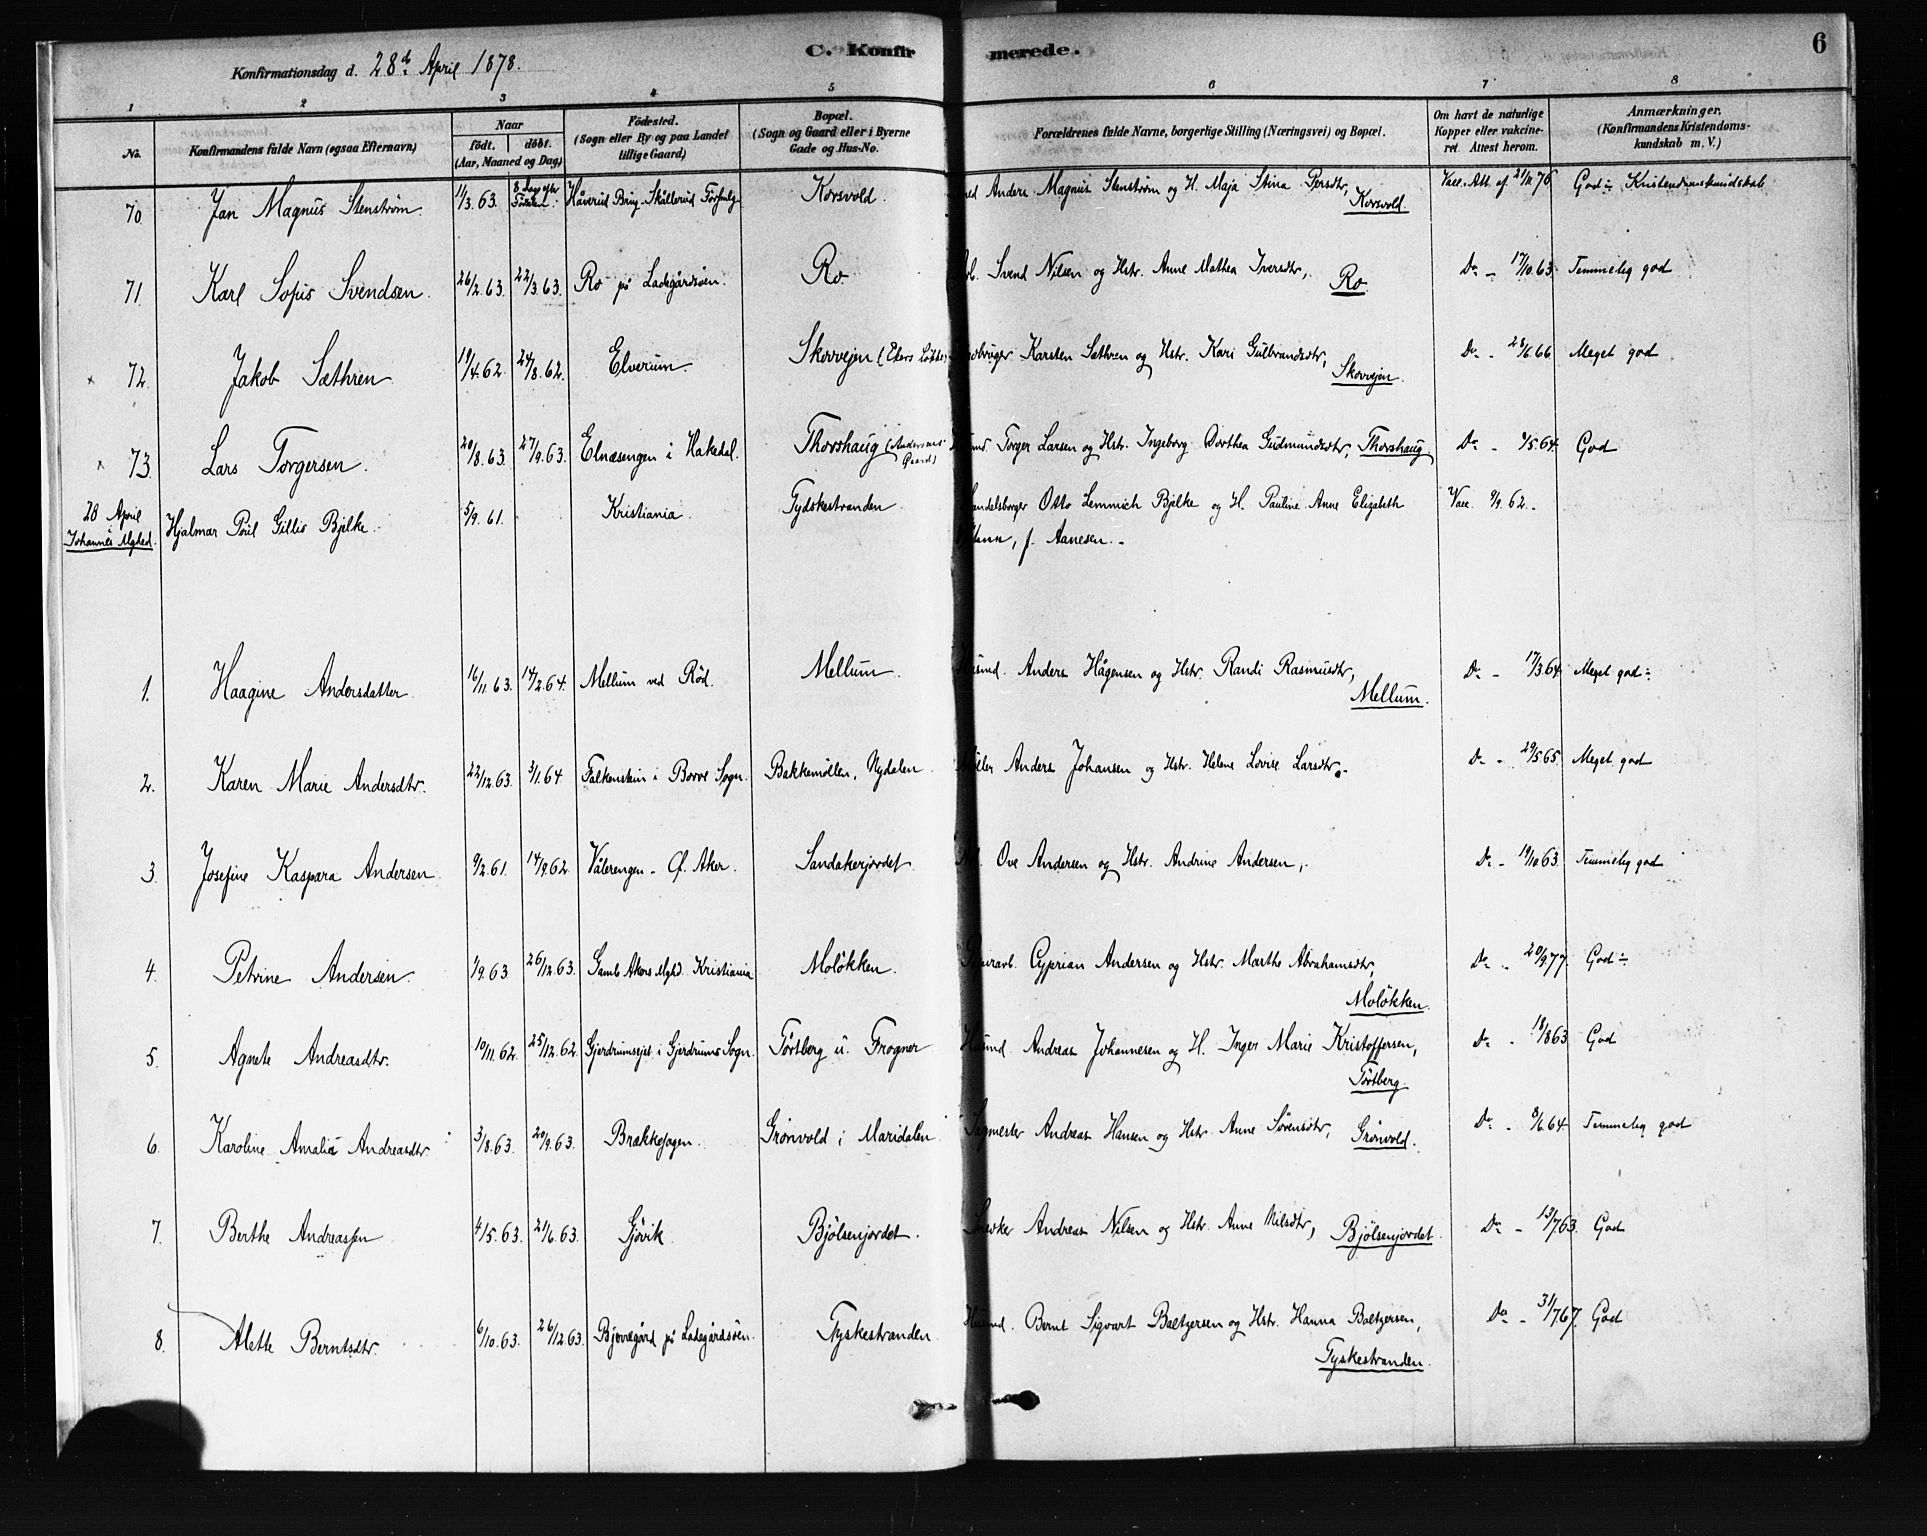 C. Konfirmerede. 6
Konfirmationsdag d. 28de April 1878.
1 2 3 4 5 6 7 8
No. Konfirmandens fulde Navn (ogsaa Efternavn) Naar födt. döbt. (Aar, Maaned og Dag) Födested. (Sogn eller By og paa Landet tillige Gaard) Bopæl. (Sogn og Gaard eller i Byerne Gade og Hus-No. Forældrenes fulde Navne, borgerlige Stilling (Næringsvei) og Bopæl. Om havt de naturlige Kopper eller vakcineret. Attest herom. Anmærkninger. (Konfirmandens Kristendomskundskab m. V.)
70 Jan Magnus Stenstrøm. 11/3.63. 8 Dag efter Födslen Håverud Brug Skållerud Korsvold. Anders Magnus Stenström og H. Maja Stina Persdtr, Korsvold. Vacc. Att. af 21/11 76 God Kristendomskundskab
71. Karl Sofus Svendsen. 26/2.63. 22/3.63. Ro på Ladegårdsöen. Ro. Svend Nilsen og Hstr. Anne Mathea Iversdtr, Ro. Do - 17/10.63. Temmelig god
72. Jakob Sæthren. 19/4.62. 24/8.62. Elverum. Skovvejen (Ekers Løkke) Karsten Sæthren og Hstr. Kari Gulbrandsdtr, Skovvejen. Do - 28/6.66. Meget god
73. Lars Torgersen. 20/8.63. 27/9.63. Elnæsengen i Hakedal. Thorshaug (Andersens Gaard) Torger Larsen og Hstr. Ingeborg Dorthea Gudmundsdtr, Thorshaug. Do - /5.64. God
28 April i Johannes Mghed. Hjalmar Poul Gillis Bjelke. 5/9.61. Kristiania. Tydskestranden Handelsborger Otto Lemmich Bjelke og H. Pauline Anne Elizabeth
f. Aanesen. Vacc. 9/9.62.
1. Haagine Andersdatter 16/11.63. 14/2.64. Mellum ved Röd. Mellum. Husmd. Anders Hågensen og Hstr. Randi Rasmusdtr, Mellum. Do - 17/3.64. Meget god
2. Karen Marie Andersdtr. 22/12.63. 3/1.64 Falkenstein i Borre Sogn. Bakkemöllen, Nydalen. Möller Anders Johansen og Hstr. Helene Lovise Larsdtr. Do - 29/5.65. Meget god
3. Josefine Kaspara Andersen. 9/2.61. 14/9.62. Vålerengen - Ö. Aker. Sandakerjordet Ove Andersen og Hstr. Andrine Andersen, Do - 19/10.63. Temmelig god
4. Petrine Andersen. 1/9.63 26/12.63. Gaml. Akers Mghd. Kristiania Molökken. Cyprian Andersen og Hstr. Marthe Abrahamsdtr, Molökken. Do - 20/9.77. God
5. Agnete Andreasdtr. 10/11.62. 25/12.62. Gjerdrumsejet i Gjerdrums Sogn. Törtberg u. Frogner Husmd. Andreas Johannesen og H. Inger Marie Kristoffersen, Törtberg. Do - 18/8.63 God
6. Karoline Amalia Andreasdtr. 3/8.63. 20/9.63. Brækkesagen. Grönvold i Maridalen Sagmester Andreas Hansen og Hstr. Anne Sörensdtr, Grönvold. Do - 8/6.64. Temmelig god
7. Berthe Andreassen 4/5.63. 21/6.63. Gjövik Bjölsenjordet. Snedker Andreas Nilsen og Hstr. Anne Nilsdtr, Bjölsenjordet. Do - 13/7.63. God
8. Alette Berntsdtr. 6/10.63. 26/12.63. Bjovegård på Ladegårdsöen. Tyskestranden Husmd. Bernt Sigvart Baltzersen og Hstr. Hanna Baltzersen, Tyskestranden. Do - 31/7.67. God